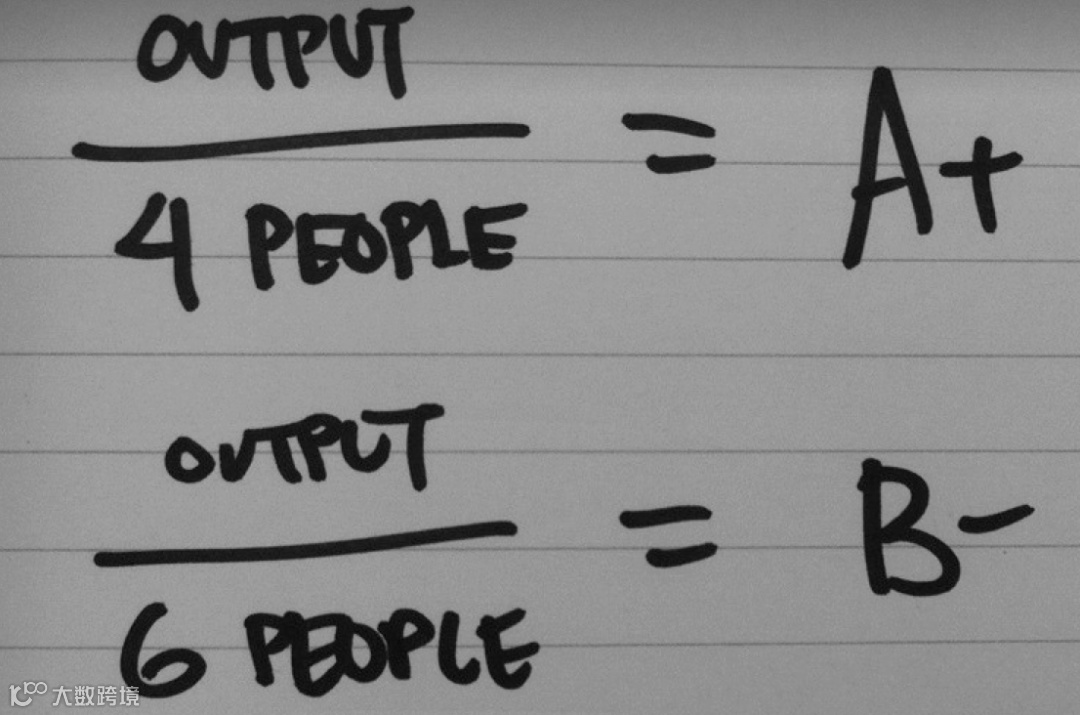 OUTPUT
4 PEOPLE
= A+
OUTPUT
6 PEOPLE
= B-
大数跨境